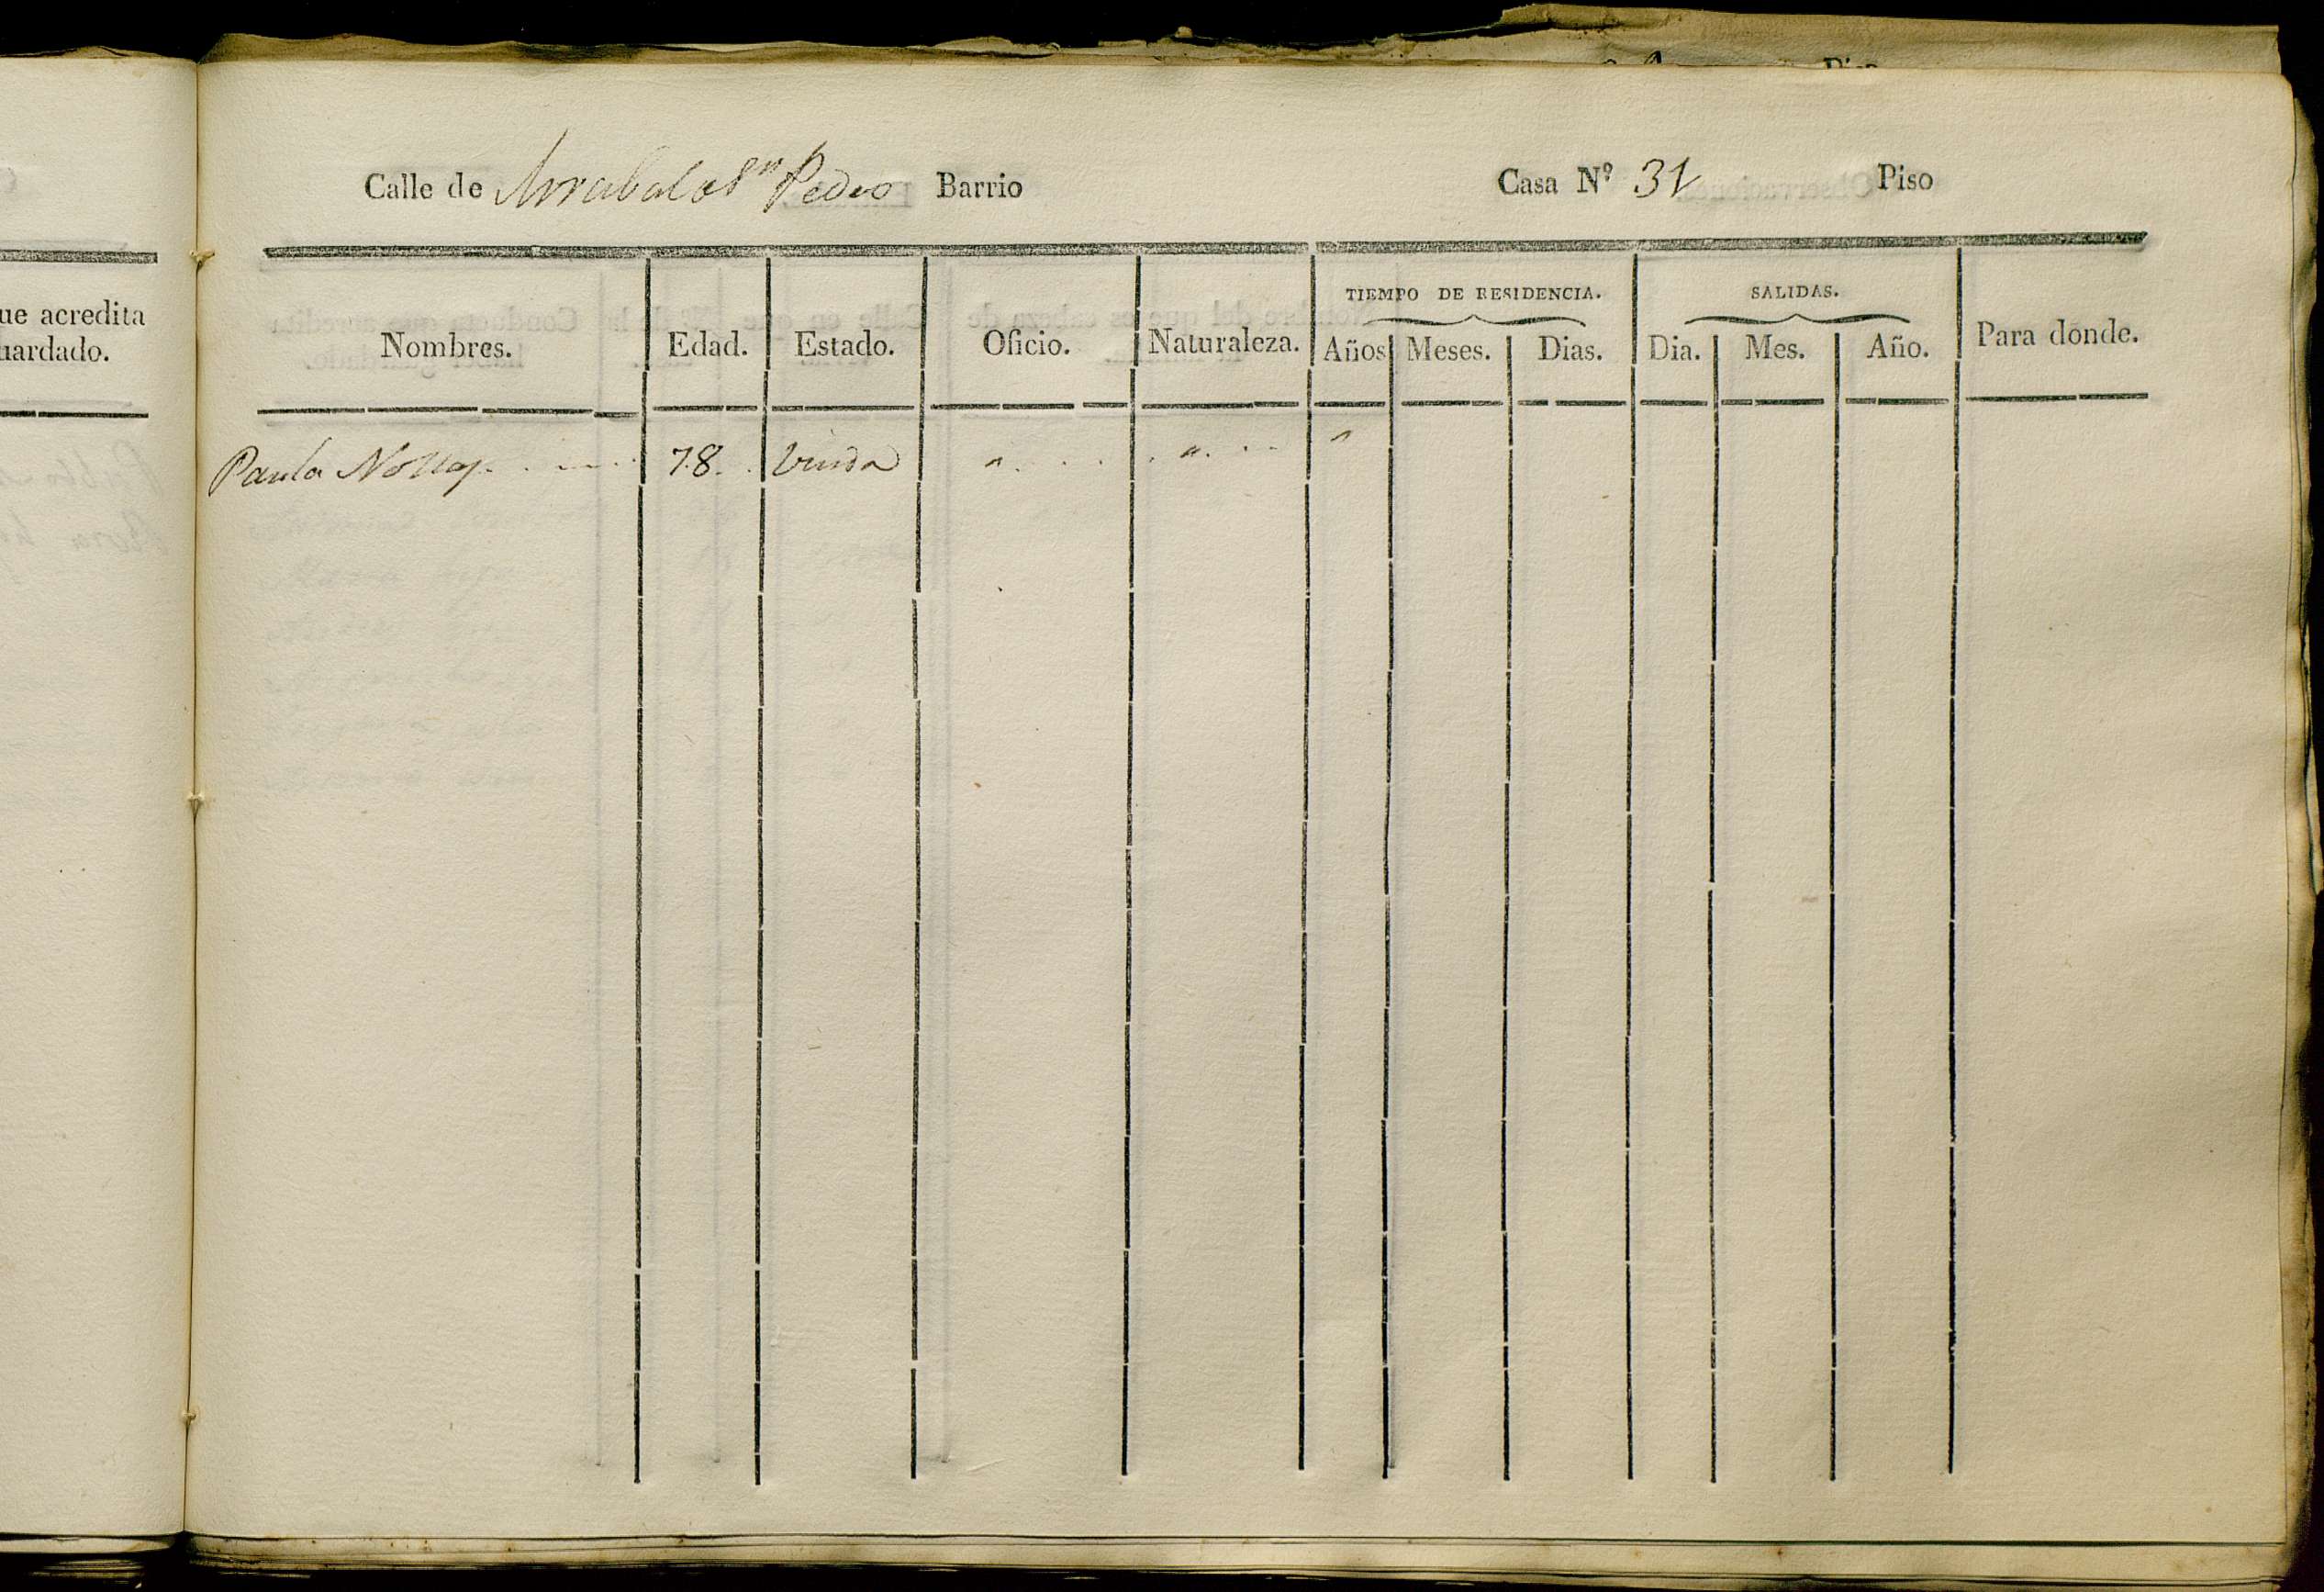 ue acredita
uardado.
Calle de Arrabal de Sn Pedro Barrio Casa Nº 31 Piso
TIEMPO DE RESIDENCIA. SALIDAS.
Nombres. Edad. Estado. Oficio. Naturaleza. Años Meses. Dias. Dia. Mes. Año. Para donde.
Paula 78. Viuda " "